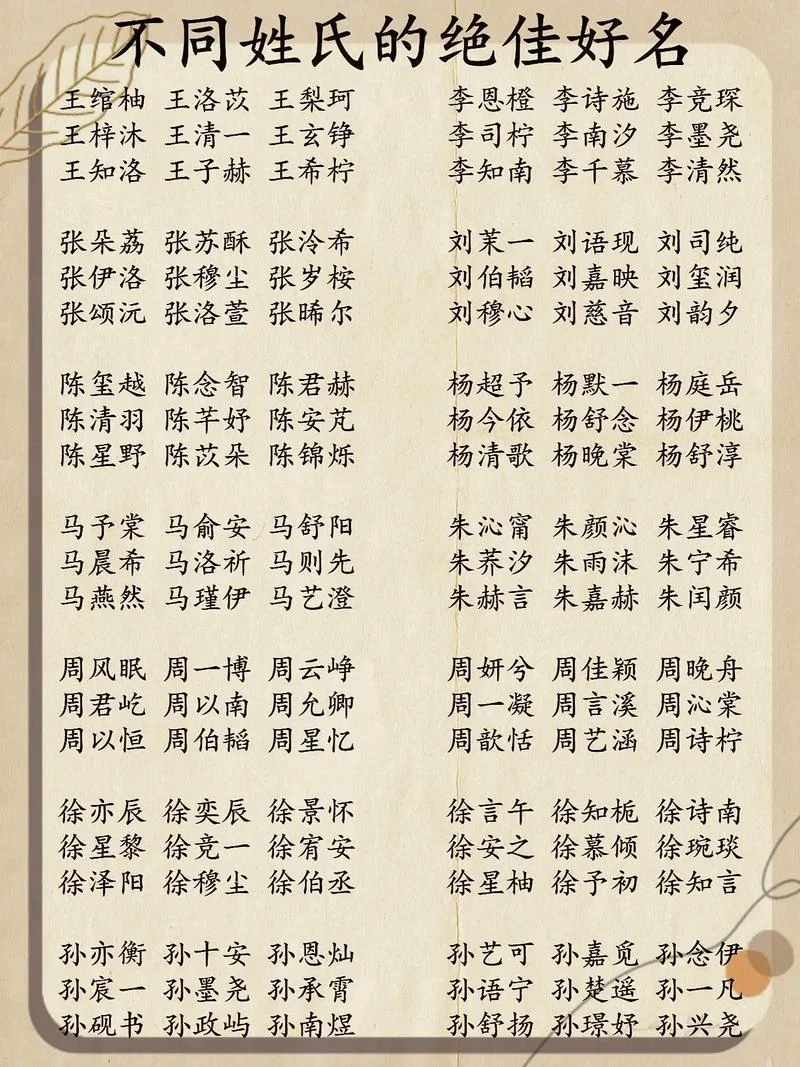 不同姓氏的绝佳好名
王绾柚 王洛苡 王梨珂
王梓沐 王清一 王玄铮
王知洛 王子赫 王希柠
李恩橙 李诗施 李竞琛
李司柠 李南汐 李墨尧
李知南 李千慕 李清然
张朵荔 张苏酥 张泠希
张伊洛 张穆尘 张岁桉
张颂沅 张洛萱 张晞尔
刘茉一 刘语现 刘司纯
刘伯韬 刘嘉映 刘玺润
刘穆心 刘慈音 刘韵夕
陈玺越 陈念智 陈君赫
陈清羽 陈芊妤 陈安芃
陈星野 陈苡朵 陈锦烁
杨超予 杨默一 杨庭岳
杨今依 杨舒念 杨伊桃
杨清歌 杨晚棠 杨舒淳
马予棠 马俞安 马舒阳
马晨希 马洛祈 马则先
马燕然 马瑾伊 马艺澄
朱沁甯 朱颜沁 朱星睿
朱荞汐 朱雨沫 朱宁希
朱赫言 朱嘉赫 朱闰颜
周风眠 周一博 周云峥
周君屹 周以南 周允卿
周以恒 周伯韬 周星忆
周妍兮 周佳颖 周晚舟
周一凝 周言溪 周沁棠
周歆恬 周艺涵 周诗柠
徐亦辰 徐奕辰 徐景怀
徐星黎 徐竞一 徐宥安
徐泽阳 徐穆尘 徐伯丞
徐言午 徐知栀 徐诗南
徐安之 徐慕倾 徐琬琰
徐星柚 徐予初 徐知言
孙亦衡 孙十安 孙恩灿
孙宸一 孙墨尧 孙承霄
孙砚书 孙政屿 孙南煜
孙艺可 孙嘉觅 孙念伊
孙语宁 孙楚遥 孙一凡
孙舒扬 孙璟妤 孙兴尧